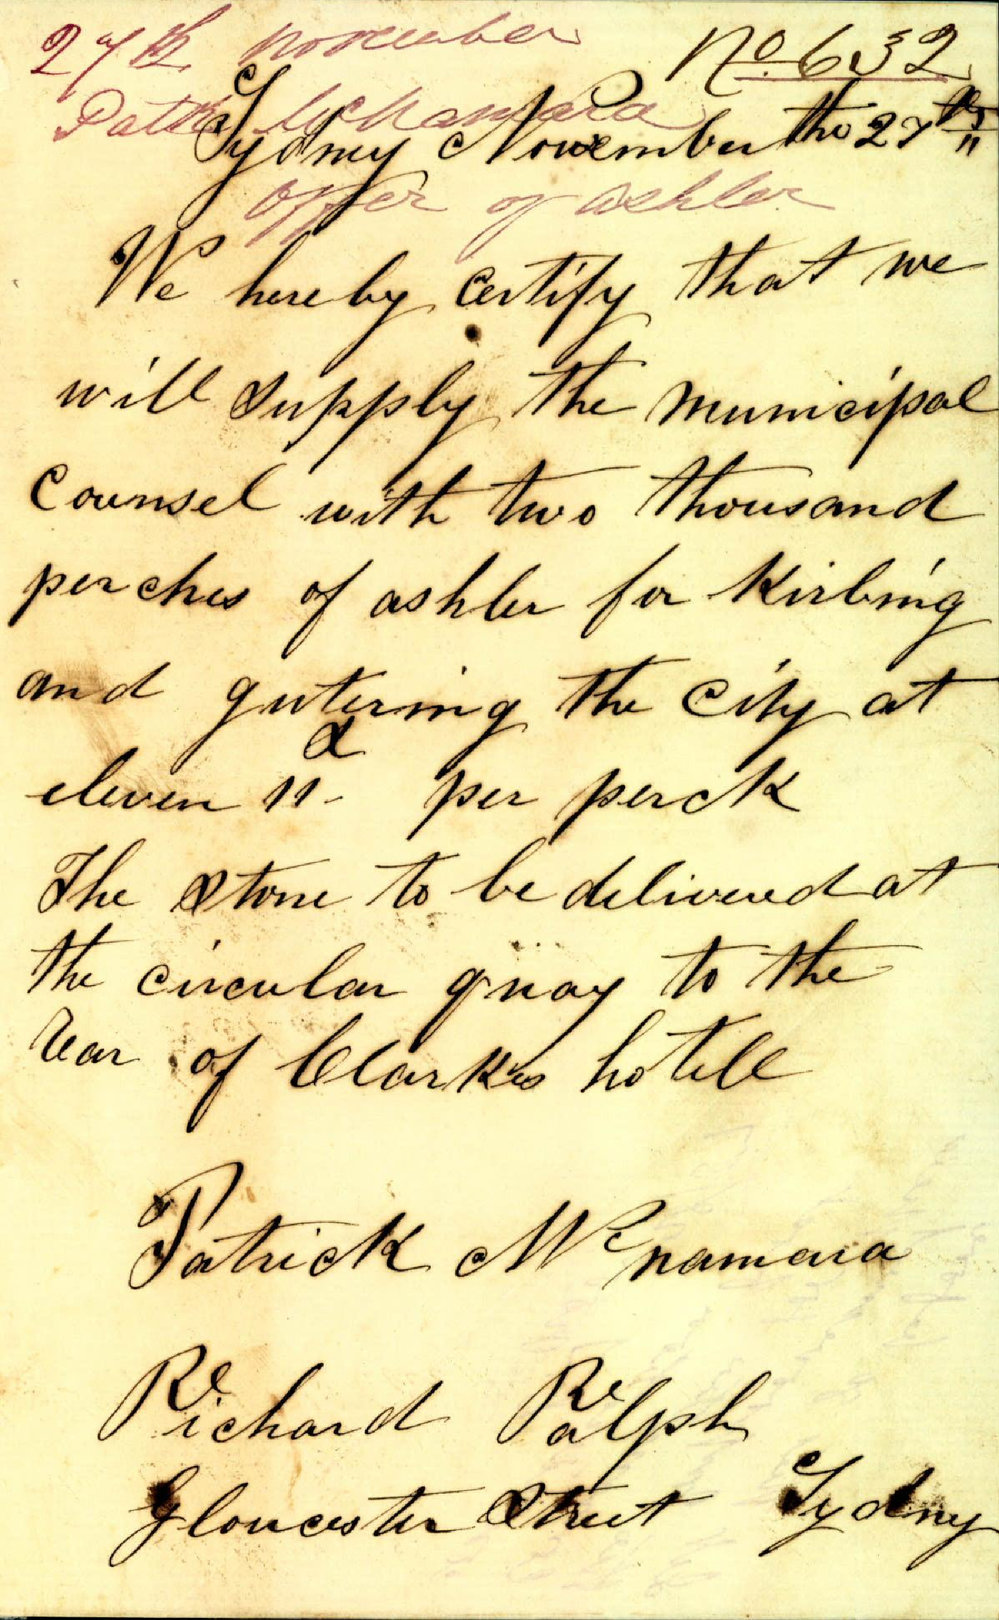 27th November
No. 632
Patk McNamara
Sydney November the 27th
Offer of Ashler
We here by certify that we
will supply the municipal
counsel with two thousand
perches of ashler for Kirbing
and gutering the city at
eleven 11d per perck
The stone to be delivered at
the circular quay to the
rear of Clarkes hotell
Patrick McNamara
Richard Ralph
Gloucester Street Sydney